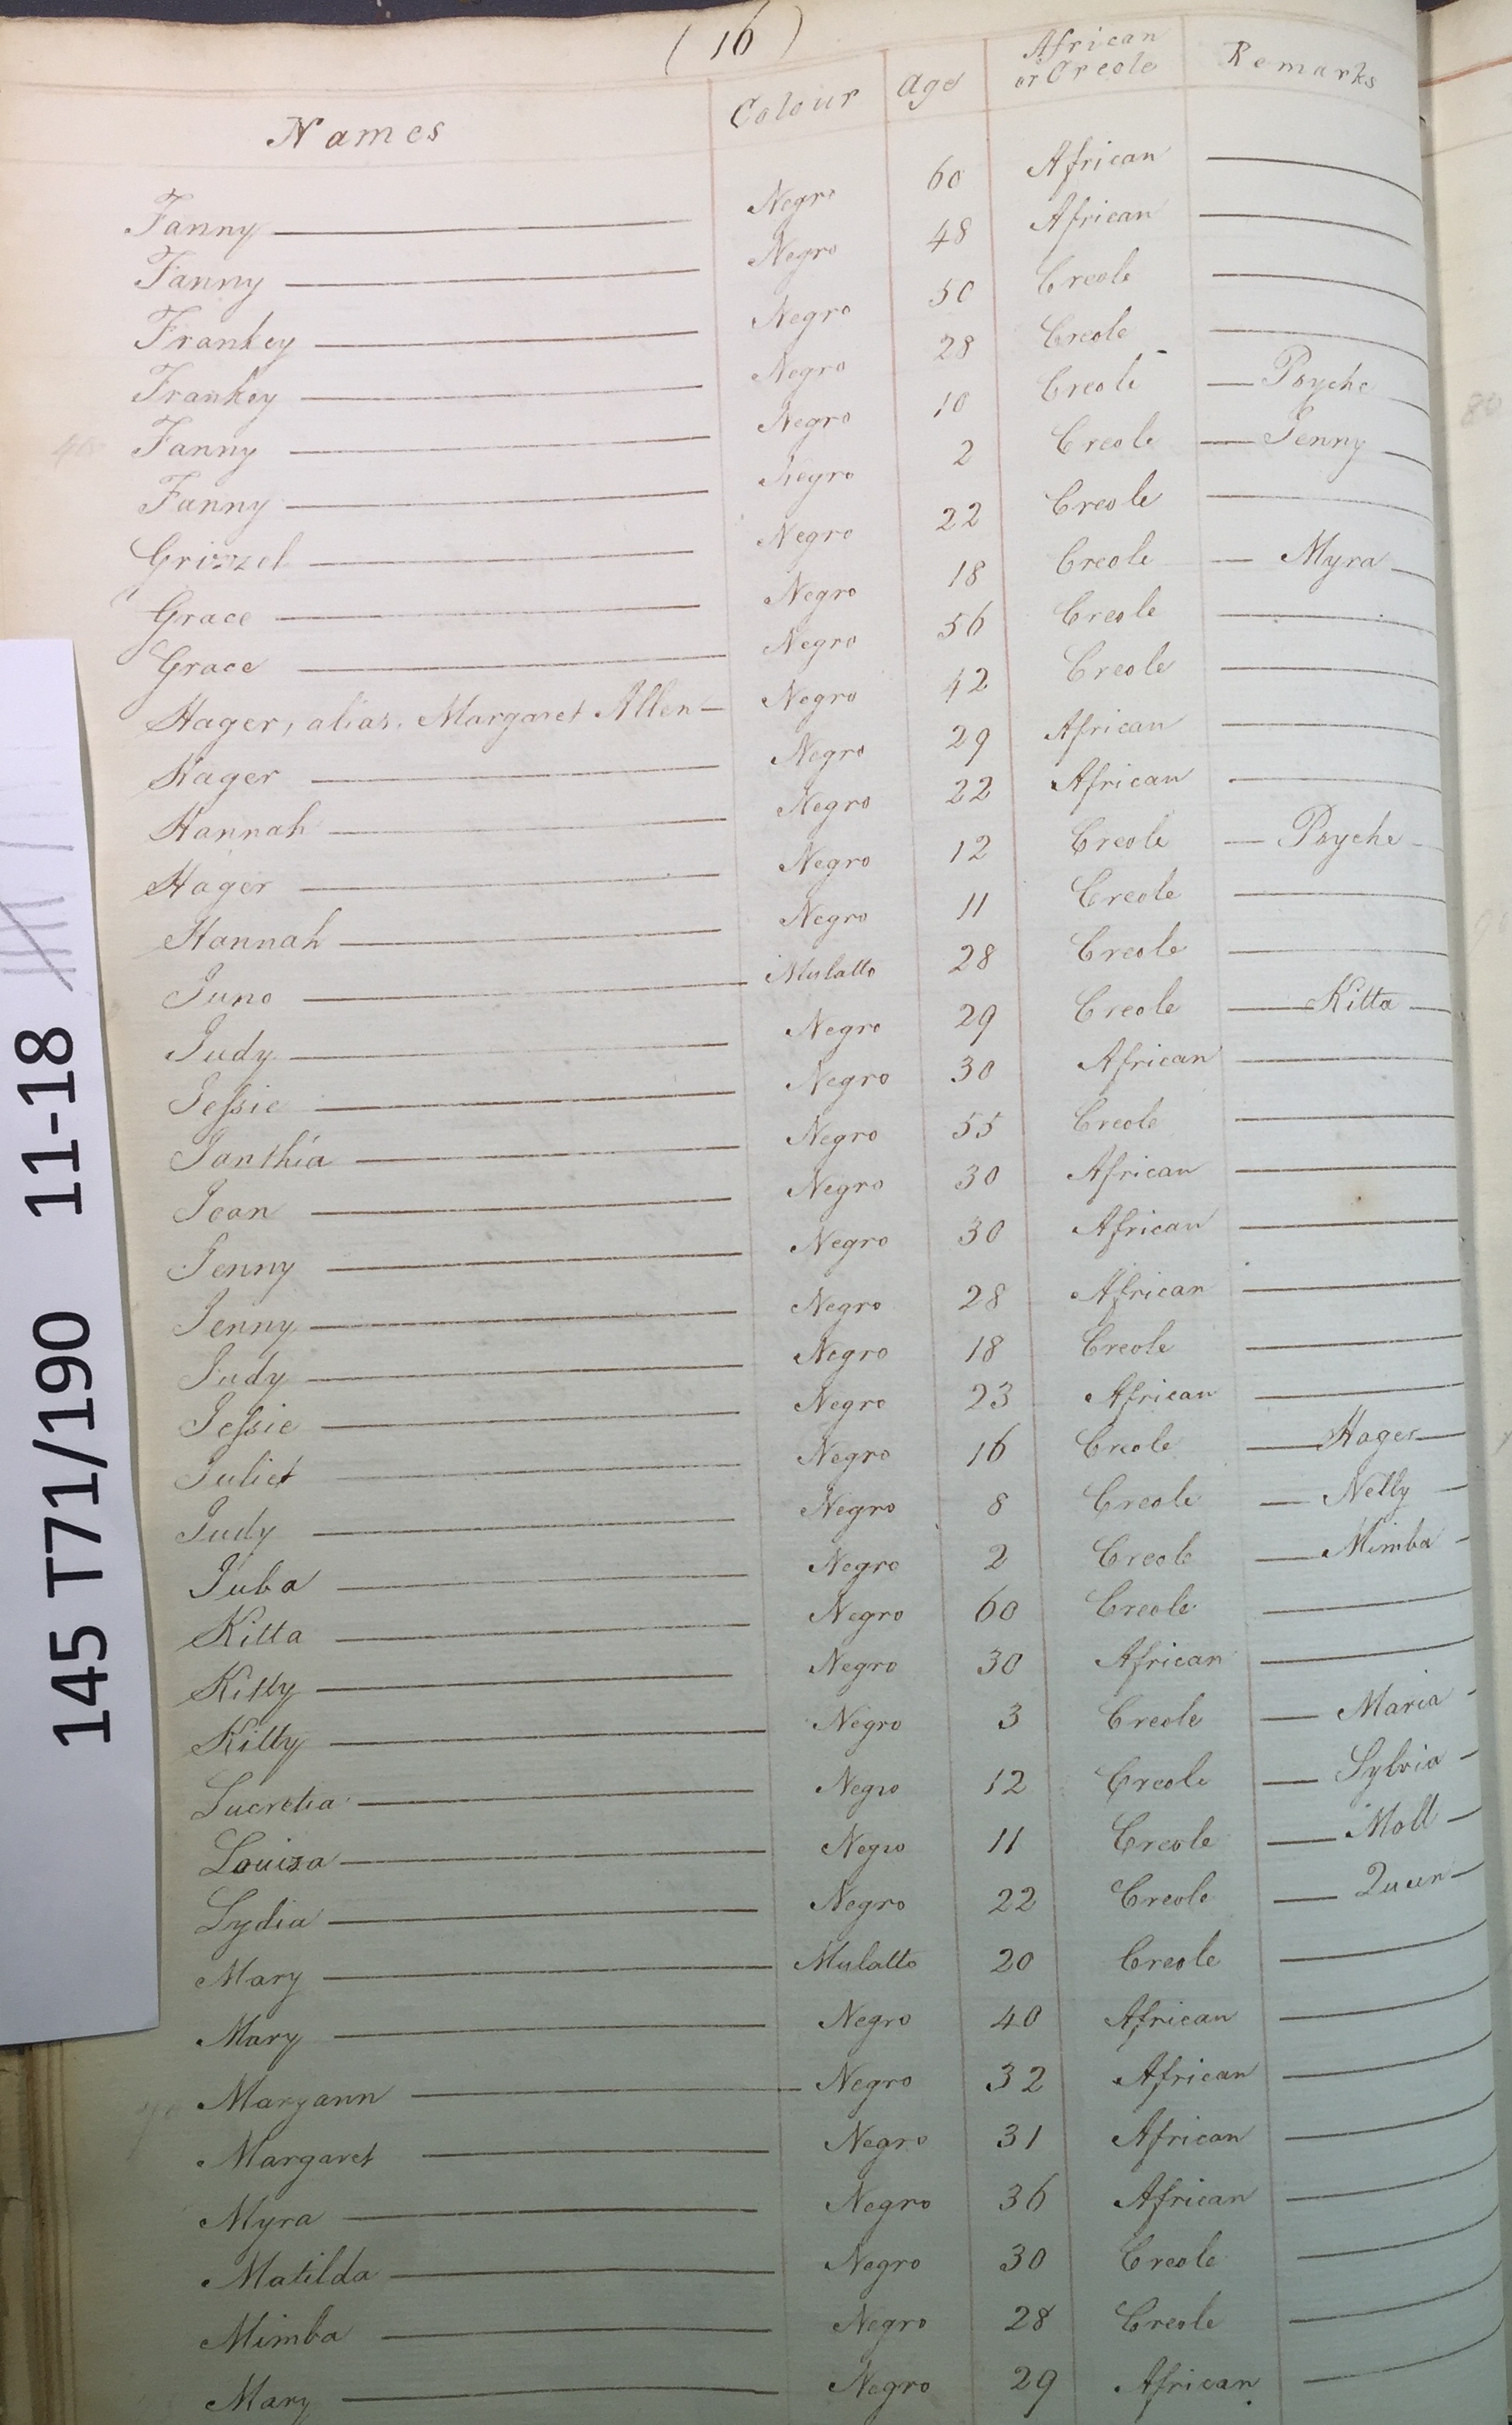 ( 16 )
Names Colour Age African or Creole Remarks
Fanny — Negro 60 African —
Fanny — Negro 48 African —
Frankey — Negro 50 Creole —
Frankey — Negro 28 Creole —
40 Fanny — Negro 10 Creole — Psyche —
Fanny — Negro 2 Creole — Jenny —
Grizzel — Negro 22 Creole —
Grace — Negro 18 Creole — Myra —
Grace — Negro 56 Creole —
Hager, alias, Margaret Allen — Negro 42 Creole —
Hager — Negro 29 African —
Hannah — Negro 22 African —
Hager — Negro 12 Creole — Psyche —
Hannah — Negro 11 Creole —
Juno — Mulatto 28 Creole —
Judy — Negro 29 Creole — Kitta —
Jessie — Negro 30 African —
Janthia — Negro 55 Creole —
Jean — Negro 30 African —
Jenny — Negro 30 African —
Jenny — Negro 28 African —
Judy — Negro 18 Creole —
Jessie — Negro 23 African —
Juliet — Negro 16 Creole — Hager —
Judy — Negro 8 Creole — Nelly —
Juba — Negro 2 Creole — Mimba —
Kitta — Negro 60 Creole —
Kitty — Negro 30 African —
Kitty — Negro 3 Creole — Maria —
Lucretia — Negro 12 Creole — Sylvia —
Louisa — Negro 11 Creole — Moll —
Lydia — Negro 22 Creole — Queen —
Mary — Mulatto 20 Creole —
Mary — Negro 40 African —
Maryann — Negro 32 African —
Margaret — Negro 31 African —
Myra — Negro 36 African —
Matilda — Negro 30 Creole —
Mimba — Negro 28 Creole —
Mary — Negro 29 African —
145 T71/190 11-18
80